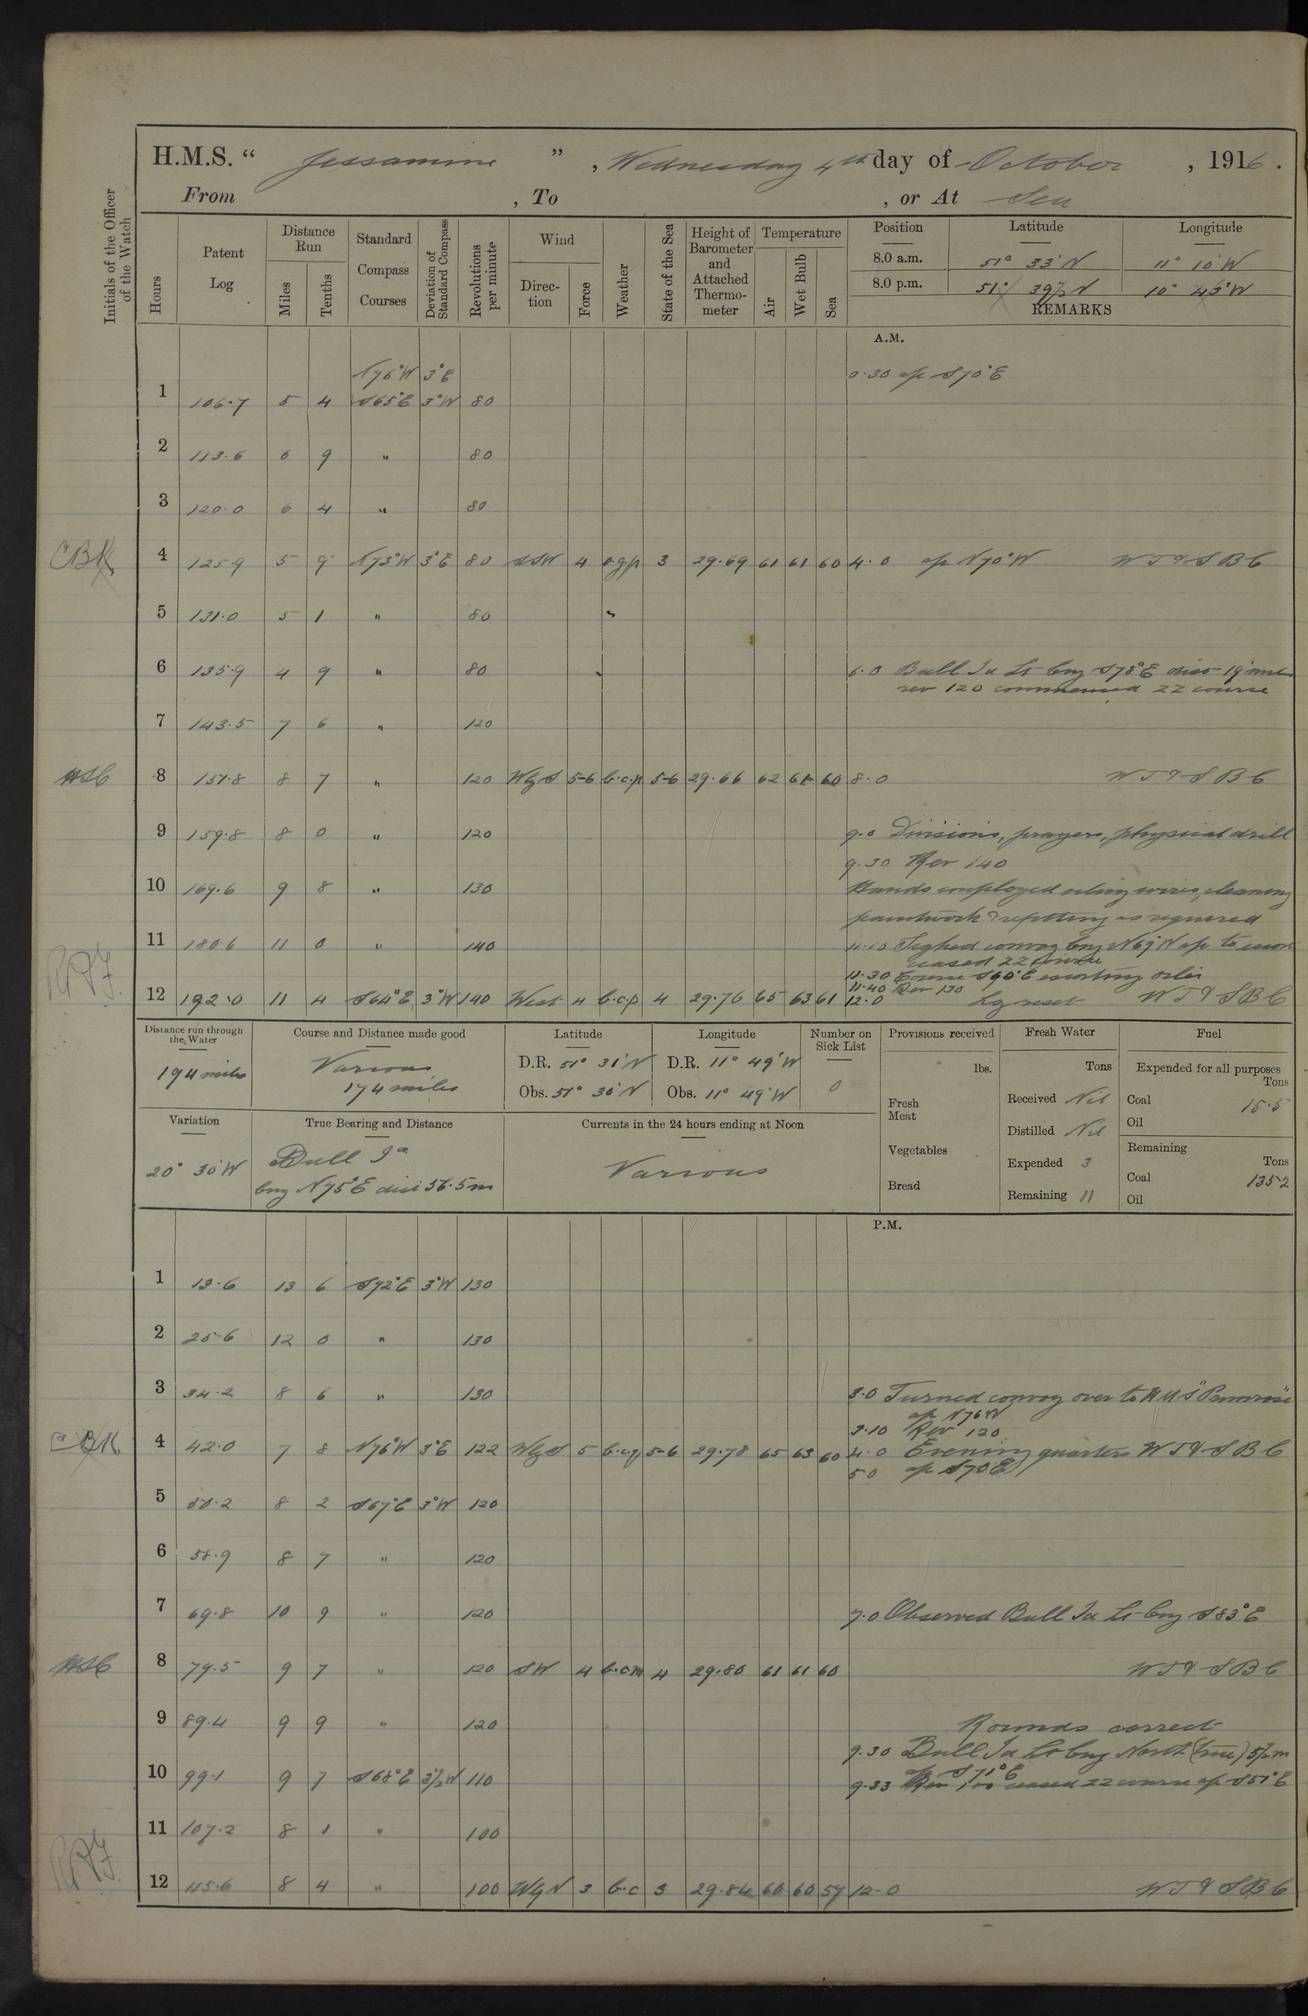 H.M.S. " Jessamine " , Wednesday 4th day of October , 1916.
From , To , or At Sea
Initials of the Officer of the Watch
Hours
Patent Log
Distance Run
Miles
Tenths
Standard Compass Courses
Deviation of Standard Compass
Revolutions per minute
Wind
Direction
Force
Weather
State of the Sea
Height of Barometer and Attached Thermometer
Temperature
Air
Wet Bulb
Sea
Position Latitude Longitude
8.0 a.m. 51° 33' N 11° 10' W
8.0 p.m. 51° 39½ N 10° 43' W
REMARKS
A.M.
N76°W 3°E 0.30 a/c S70°E
1 106.7 5 4 S65°E 3°W 80
2 113.6 6 9 " 80
3 120.0 6 4 " 80
CBK 4 125.9 5 9 N73°W 3°E 80 SSW 4 o.g.p 3 29.69 61 61 60 4.0 a/c N70°W W T & S B C
5 131.0 5 1 " 80
6 135.9 4 9 " 80 6.0 Bull Id Lt brg S78°E dist 19 miles
rev 120 commenced ZZ course
7 143.5 7 6 " 120
8 151.8 8 7 " 120 WbyS 5-6 b.c.p 5-6 29.66 62 61 60 8.0 W T & S B C
9 159.8 8 0 " 120 9.0 Divisions, prayers, physical drill
9.30 Rev 140
10 169.6 9 8 " 130 Hands employed oiling wires, cleaning
paintwork & refitting as required
11 180.6 11 0 " 140 11.10 Sighted convoy brg N69°W a/c to
ceased ZZ course
11.30 Course S90°E escorting oiler
11.40 Rev 130
12 192.0 11 4 S64°E 3°W 140 West 4 b.c.p 4 29.76 65 63 61 12.0 Log reset W T & S B C
Distance run through the Water
194 miles
Course and Distance made good
Various
174 miles
Latitude
D.R. 51° 31' N
Obs. 51° 30' N
Longitude
D.R. 11° 49' W
Obs. 11° 49' W
Number on Sick List
0
Provisions received
lbs.
Fresh Meat
Vegetables
Bread
Fresh Water
Tons
Received Nil
Distilled Nil
Expended 3
Remaining 11
Fuel
Expended for all purposes
Tons
Coal 15.5
Oil
Remaining
Tons
Coal 135.2
Oil
Variation
20° 30' W
True Bearing and Distance
Bull Id
brg N75°E dist 56.5 m
Currents in the 24 hours ending at Noon
Various
P.M.
1 13.6 13 6 S72°E 3°W 130
2 25.6 12 0 " 130
3 34.2 8 6 " 130 3.0 Turned convoy over to H M S "Primrose"
a/c N76W
3.10 Rev 120
CBK 4 42.0 7 8 N76°W 3°E 122 WbyS 5 5-6 29.78 65 63 60 4.0 Evening quarters W T & S B C
5.0 a/c S70E
5 50.2 8 2 S67°E 3°W 120
6 58.9 8 7 " 120
7 69.8 10 9 " 120 7.0 Observed Bull Id Lt brg S83°E
8 79.5 9 7 " 120 SW 4 b.c.m 4 29.80 61 61 60 W T & S B C
9 89.4 9 9 " 120 Rounds correct
9.30 Bull Id Lt brg North (true) 5½m
a/c S71°E
10 99.1 9 7 S68°E 3½W 110 9.33 Rev 100 ceased ZZ course a/c S51°E
11 107.2 8 1 " 100
12 115.6 8 4 " 100 WbyN 3 b.c 3 29.84 60 60 59 12.0 W T & S B C